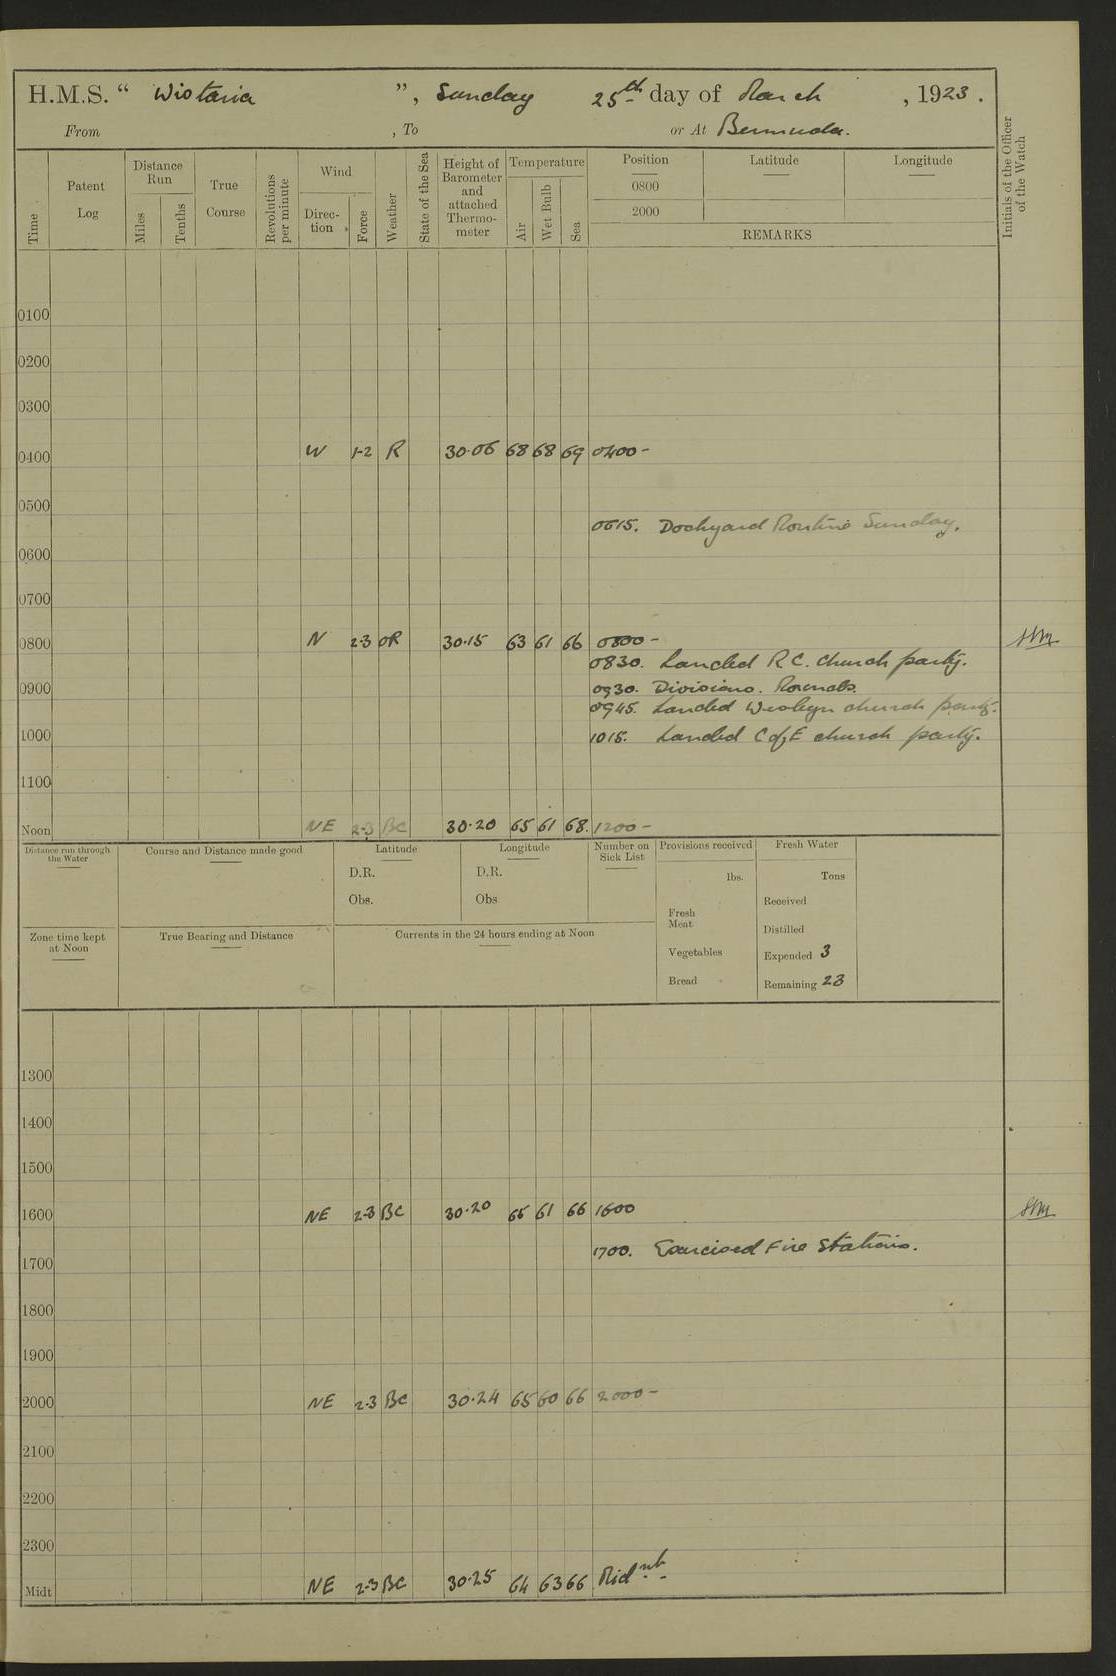 H.M.S. “ Wistaria ”, Sunday 25th day of March, 1923.
From , To or At Bermuda.
Time
Patent Log
Distance Run
Miles
Tenths
True Course
Revolutions per minute
Wind
Direc- tion
Force
Weather
State of the Sea
Height of Barometer and attached Thermo- meter
Temperature
Air
Wet Bulb
Sea
Position
0800
2000
Latitude
Longitude
REMARKS
Initials of the Officer of the Watch
0100
0200
0300
0400 W 1-2 R 30·06 68 68 69 0400 -
0500
0615. Dockyard Routine Sunday.
0600
0700
0800 N 2-3 OR 30·15 63 61 66 0800 -
0830. Landed R C. church party.
0900 0930. Divisions. Rounds.
0945. Landed Wesleyn church party.
1000 1015. Landed C of E church party.
1100
Noon NE 2-3 BC 30·20 65 61 68. 1200 -
Distance run through the Water
Course and Distance made good
Latitude
D.R.
Obs.
Longitude
D.R.
Obs
Number on Sick List
Provisions received
lbs.
Fresh Meat
Vegetables
Bread
Fresh Water
Tons
Received
Distilled
Expended 3
Remaining 23
Zone time kept at Noon
True Bearing and Distance
Currents in the 24 hours ending at Noon
1300
1400
1500
1600 NE 2-3 BC 30·20 65 61 66 1600
1700. Exercised Fire Stations.
1700
1800
1900
2000 NE 2-3 BC 30·24 65 60 66 2000 -
2100
2200
2300
Midt NE 2-3 BC 30·25 64 63 66 Midnt